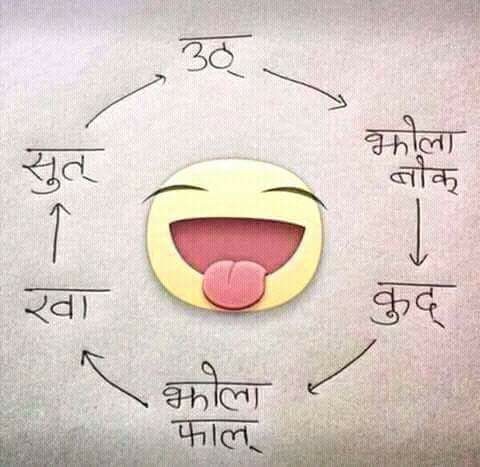 उठ्
झोला
बोक्
कुद्
झोला
फाल्
खा
सुत्